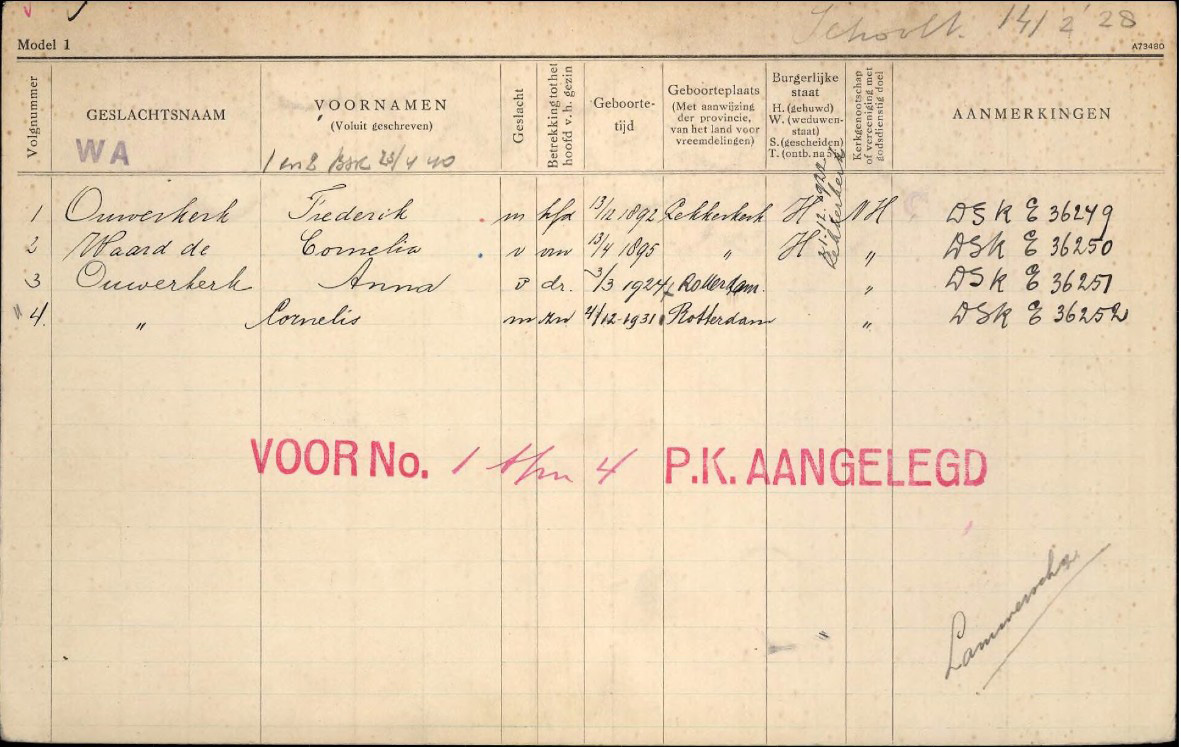 Schoolt. 14/2 '28
Model 1
A73480
Volgnummer
GESLACHTSNAAM
VOORNAMEN
(Voluit geschreven)
Geslacht
Betrekking tot het
hoofd v. h. gezin
Geboorte-
tijd
Geboorteplaats
(Met aanwijzing
der provincie,
van het land voor
vreemdelingen)
Burgerlijke
staat
H. (gehuwd)
W. (weduwen-
staat)
S. (gescheiden)
T. (ontb. na 5 j.
Kerkgenootschap
of vereeniging met
godsdienstig doel
AANMERKINGEN
WA
1 en 2 BSK 23/4 40
1 Ouwerkerk Frederik m hfd 13/12 1892 Lekkerkerk H NH C DSK E 36249
2 Waard de Cornelia v vrw 13/4 1895 " H " DSK E 36250
12 1922
Lekkerkerk
3 Ouwerkerk Anna v dr. 3/3 1924 Rotterdam. " DSK E 36251
" 4. " Cornelis m zn 4/12-1931 Rotterdam " DSK E 36252
VOOR No. 1 t/m 4 P.K. AANGELEGD
"